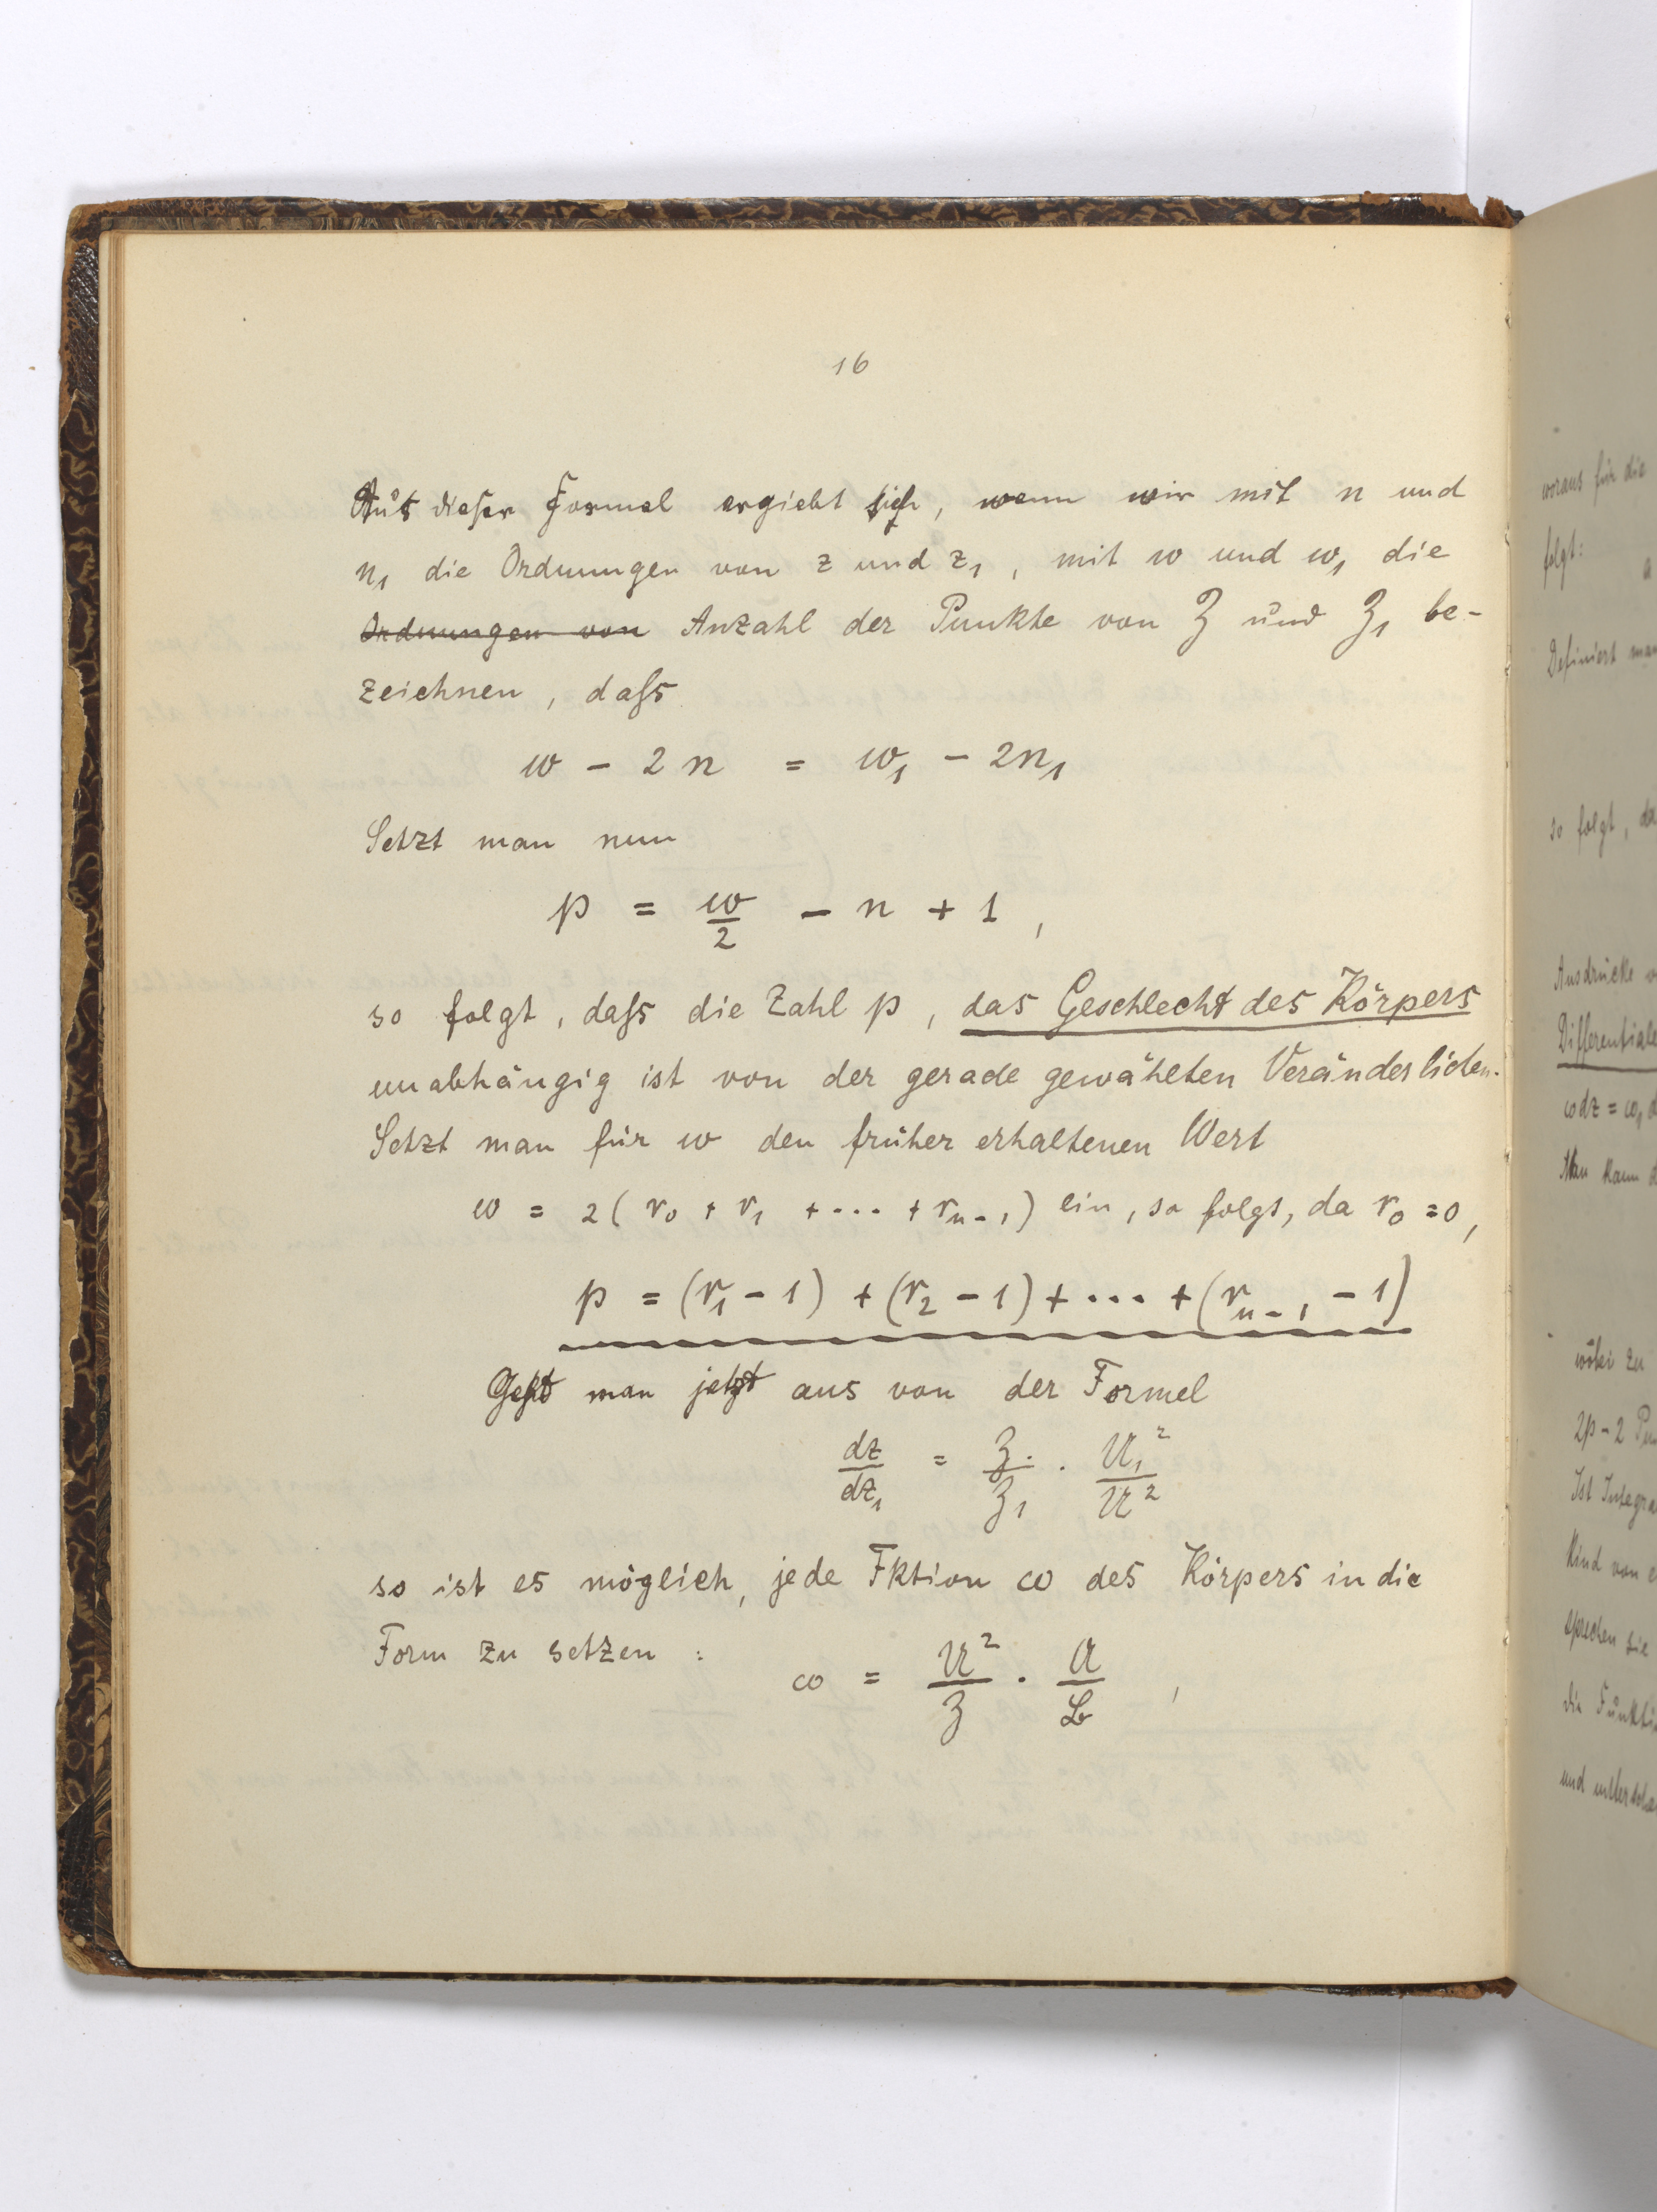 16
Aus dieser Formel ergiebt sich, wenn wir mit n und
n₁ die Ordnungen von z und z₁, mit w und w₁ die
Ordnungen von Anzahl der Punkte von ℨ und ℨ₁ be-
zeichnen, daſs
w - 2n = w₁ - 2n₁
Setzt man nun
p = w/2 - n + 1,
so folgt, daſs die Zahl p, das Geschlecht des Körpers
unabhängig ist von der gerade gewählten Veränderlichen.
Setzt man für w den früher erhaltenen Wert
w = 2(r₀ + r₁ + ... + rₙ₋₁) ein, so folgt, da r₀ = 0,
p = (r₁ - 1) + (r₂ - 1) + ... + (rₙ₋₁ - 1)
Geht man jetzt aus von der Formel
dz/dz₁ = ℨ/ℨ₁ · 𝔘₁²/𝔘²
so ist es möglich, jede Fktion ω des Körpers in die
Form zu setzen :
ω = 𝔘²/ℨ · 𝔄/𝔏,
woraus für die
folgt:
Definiert man
so folgt, da
Ausdrücke
Differentiale
ωdz = ω₁
Man kann
wobei zu
2p - 2
Ist
von
sprechen sie
die
und